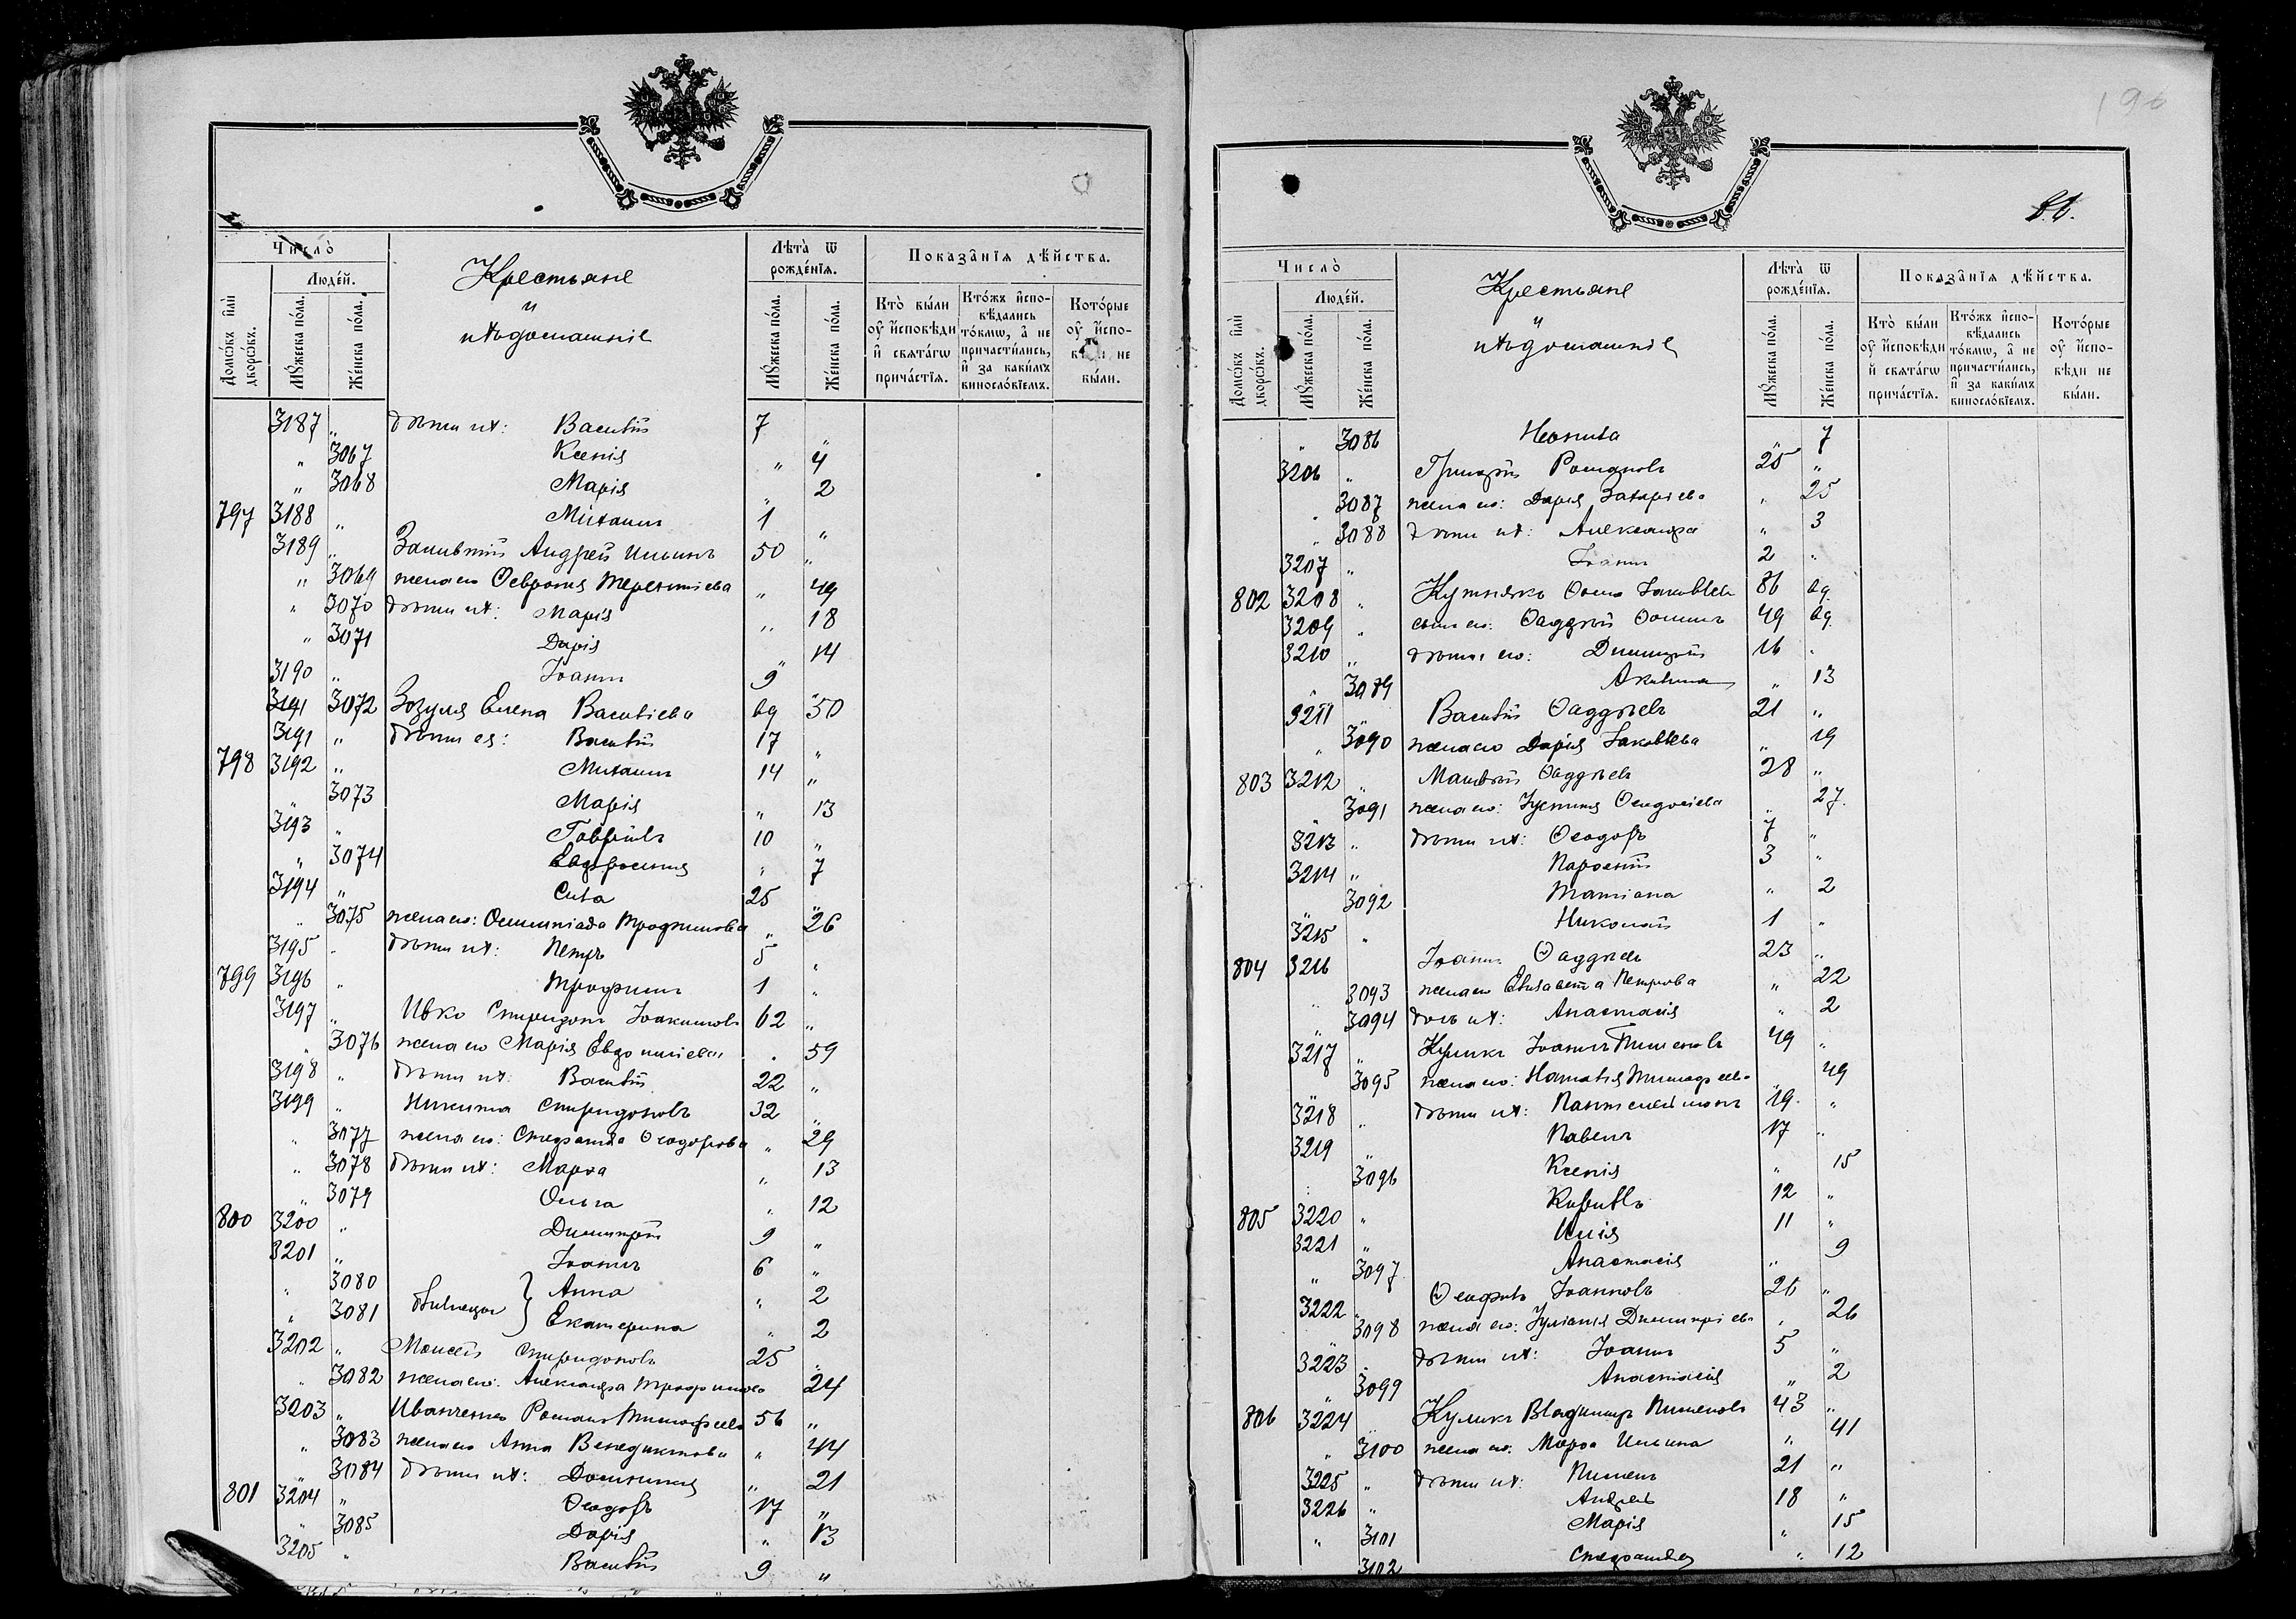 Число̀
Люде́й.
Домѡ́въ и҆лѝ дворѡ́въ.
Мꙋ́жеска по́ла.
Же́нска по́ла.
Крестьяне
и
ихъ домашніе
Лѣта̀ ѿ рожде́нїѧ.
Мꙋ́жеска по́ла.
Же́нска по́ла.
Показа̑нїѧ дѣ́йства.
Кто̀ бы́ли оу҆ и҆сповѣди и҆ свѧта́гѡ прича́стїѧ.
Кто́жъ и҆сповѣдались то́кмѡ, а҆ не причасти́лись, и҆ за каки́мъ виносло́вїемъ.
Кото́рые оу҆ и҆сповѣди не бы́ли.
3187 „ дѣти ихъ: Василій 7
„ 3067 Ксенія „ 4
„ 3068 Марія „ 2
797 3188 „ Михаилъ 1 „
3189 „ Андрей Ильинъ 50 „
„ 3069 жена его Февронія Терентіева „ 49
„ 3070 дѣти ихъ: Марія „ 18
„ 3071 Дарія „ 14
3190 „ Іоаннъ 9 „
3191 3072 Зозуля Елена Василіева вд 50
3191 „ дѣти ея: Василій 17 „
798 3192 „ Михаилъ 14 „
„ 3073 Марія „ 13
3193 „ Гавріилъ 10 „
„ 3074 Евфросинія „ 7
3194 „ Сила 25 „
„ 3075 жена его: Олимпіада Трофимова „ 26
3195 „ дѣти ихъ: Петръ 5 „
799 3196 „ Трофимъ 1 „
3197 „ Ивко Спиридонъ Іоакимовъ 62 „
„ 3076 жена его Марія Евдокиміева „ 59
3198 „ дѣти ихъ: Василій 22 „
3199 „ Никита Спиридоновъ 32 „
„ 3077 жена его: Стефанида Ѳеодорова „ 29
„ 3078 дѣти ихъ: Марѳа „ 13
„ 3079 Ольга „ 12
800 3200 „ Димитрій 9 „
3201 „ Іоаннъ 6 „
„ 3080 близнецы } Анна „ 2
„ 3081 Екатерина „ 2
3202 „ Моисей Спиридоновъ 25 „
„ 3082 жена его: Александра Трофимова „ 24
3203 „ Иванченко Романъ Тимофеевъ 56 „
„ 3083 жена его Анна Венедиктова „ 44
„ 3084 дѣти ихъ: Домникія „ 21
801 3204 „ Ѳеодоръ 17 „
„ 3085 Дарія „ 13
3205 „ Василій 9 „
196
Число̀
Люде́й.
Домѡ́въ и҆лѝ дворѡ́въ.
Мꙋ́жеска по́ла.
Же́нска по́ла.
Крестьяне
и
ихъ домашніе
Лѣта̀ ѿ рожде́нїѧ.
Мꙋ́жеска по́ла.
Же́нска по́ла.
Показа̑нїѧ дѣ́йства.
Кто̀ бы́ли оу҆ и҆сповѣди и҆ свѧта́гѡ прича́стїѧ.
Кто́жъ и҆сповѣдались то́кмѡ, а҆ не причасти́лись, и҆ за каки́мъ виносло́вїемъ.
Кото́рые оу҆ и҆сповѣди не бы́ли.
„ 3086 Неонила „ 7
3206 „ Григорій Романовъ 25 „
„ 3087 жена его: Дарія Захаріева „ 25
„ 3088 дѣти ихъ: Александра „ 3
3207 „ Іоаннъ 2 „
802 3208 „ Кутнякъ Ѳома Іаковлевъ 86 вд
3209 „ сынъ его: Ѳаддей Ѳоминъ 49 вд
3210 „ дѣти его: Димитрій 16 „
„ 3089 Акилина „ 13
3211 „ Василій Ѳаддѣевъ 21 „
„ 3090 жена его Дарія Іаковлева „ 19
803 3212 „ Матѳій Ѳаддѣевъ 28 „
„ 3091 жена его: Іустина Ѳеодосіева „ 27
3213 „ дѣти ихъ: Ѳеодоръ 7 „
3214 „ Парѳеній 3 „
„ 3092 Татіана „ 2
3215 „ Николай 1 „
804 3216 Іоаннъ Ѳаддѣевъ 23 „
„ 3093 жена его Елизавета Петрова „ 22
„ 3094 дочь ихъ: Анастасія „ 2
3217 „ Куликъ Іоаннъ Пименовъ 49 „
„ 3095 жена его: Наталія Тимофеева „ 49
3218 „ дѣти ихъ: Пантелеймонъ 19 „
3219 „ Павелъ 17 „
„ 3096 Ксенія „ 15
805 3220 „ Кириллъ 12 „
3221 „ Илія 11 „
„ 3097 Анастасія „ 9
3222 „ Ѳеофилъ Іоанновъ 26 „
„ 3098 жена его: Іуліанія Димитріева „ 26
3223 „ дѣти ихъ: Іоаннъ 5 „
„ 3099 Анастасія „ 2
806 3224 Куликъ Владиміръ Пименовъ 43 „
„ 3100 жена его: Марѳа Ильина „ 41
3225 „ дѣти ихъ: Пименъ 21 „
3226 „ Андрей 18 „
„ 3101 Марія „ 15
3102 Стефанида „ 12